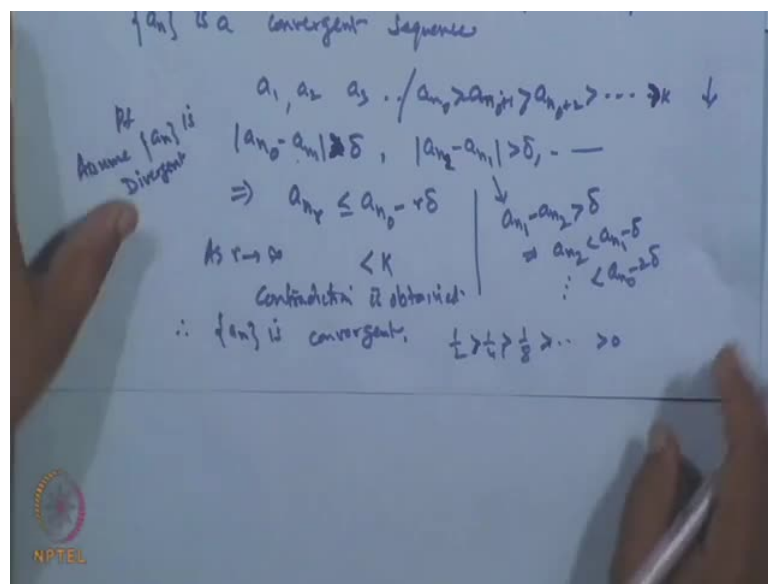 {an} is a convergent sequence
a1, a2 a3 ../ an0 > an0+1 > an0+2 > ---- > K ↓
Pf
Assume {an} is
Divergent
|an0 - an1| > δ, |an2 - an1| > δ, - —
=> anr ≤ an0 - rδ
As r → ∞ < K
Contradiction is obtained.
an1 - an2 > δ
⇒ an2 < an1 - δ
⋮ < an0 - 2δ
∴ {an} is convergent. 1/2 > 1/4 > 1/8 > .. > 0
NPTEL